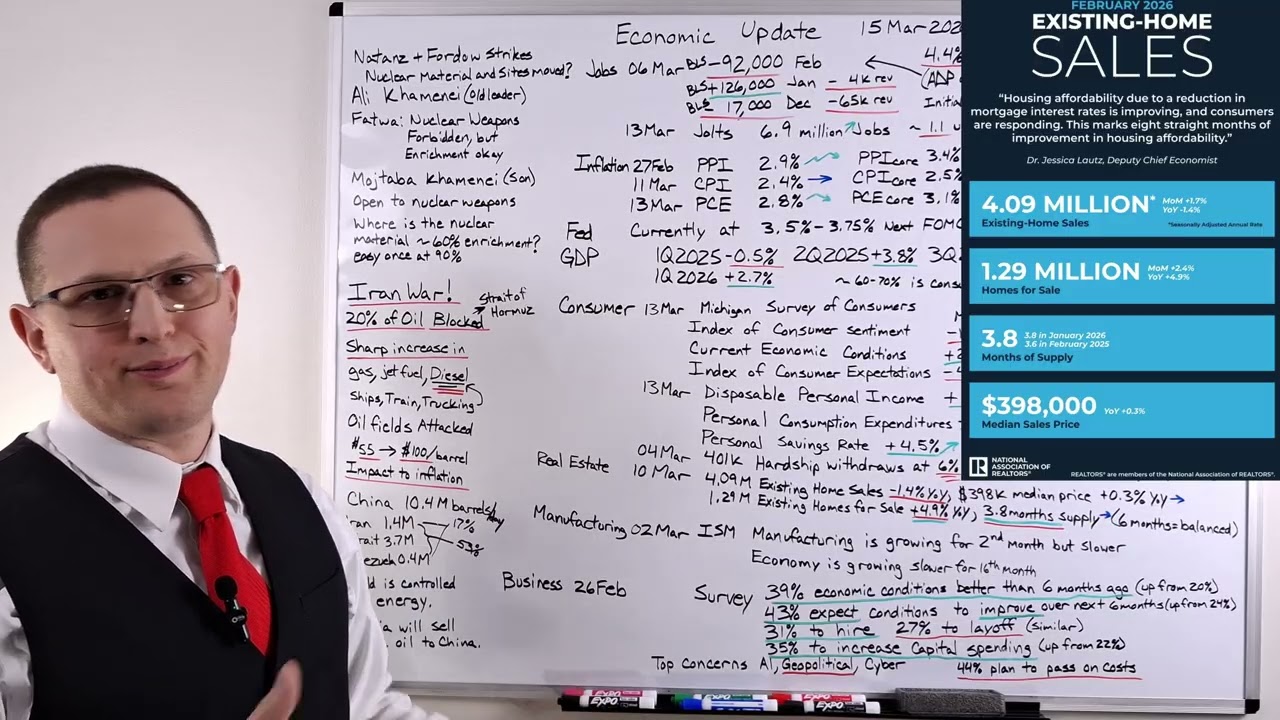 Economic Update 15 Mar 202
Natanz + Fordow Strikes
Nuclear Material and Sites moved?
Ali Khamenei (old leader)
Fatwa: Nuclear Weapons
Forbidden, but
Enrichment okay
Mojtaba Khamenei (son)
Open to nuclear weapons
Where is the nuclear
material ~60% enrichment?
easy once at 90%
Iran War!
Strait of
Hormuz
20% of Oil Blocked
Sharp increase in
gas, jet fuel, Diesel
Ships, Train, Trucking
Oil fields Attacked
$55 → $100/barrel
Impact to inflation
China 10.4M barrels/day
ran 1.4M
17%
ait 3.7M
ezueh 0.4M
d is controlled
energy.
a will sell
oil to China.
Jobs 06 Mar BLS -92,000 Feb
4.4%
BLS +126,000 Jan -4k rev
(ADP
BLS - 17,000 Dec -65k rev
Initia
13 Mar Jolts 6.9 million Jobs ~1.1 u
Inflation 27 Feb PPI 2.9% PPI core 3.4%
11 Mar CPI 2.4% → CPI core 2.5%
13 Mar PCE 2.8% PCE core 3.1%
Fed Currently at 3.5% - 3.75% Next FOMC
GDP 1Q2025 -0.5% 2Q2025 +3.8% 3Q
1Q 2026 +2.7% ~ 60-70% is cons
Consumer 13 Mar Michigan Survey of Consumers
Index of Consumer sentiment
Current Economic Conditions
Index of Consumer Expectations
13 Mar Disposable Personal Income +
Personal Consumption Expenditures
Personal Savings Rate +4.5%
04 Mar 401K Hardship withdraws at 6%
Real Estate 10 Mar 4.09M Existing Home Sales -1.4% YoY, $398K median price +0.3% YoY →
1.29M Existing Homes for Sale +4.9% YoY, 3.8 months supply → (6 months = balanced)
Manufacturing 02 Mar ISM Manufacturing is growing for 2nd Month but slower
Economy is growing slower for 16th month
Business 26 Feb Survey 39% economic conditions better than 6 months ago (up from 20%)
43% expect conditions to improve over next 6 months (up from 24%)
31% to hire 27% to layoff (similar)
35% to increase capital spending (up from 22%)
Top concerns AI, Geopolitical, Cyber 44% plan to pass on costs
EXPO
EXPO
EXPO
FEBRUARY 2026
EXISTING-HOME
SALES
“Housing affordability due to a reduction in
mortgage interest rates is improving, and consumers
are responding. This marks eight straight months of
improvement in housing affordability.”
Dr. Jessica Lautz, Deputy Chief Economist
4.09 MILLION* MoM +1.7%
YoY -1.4%
Existing-Home Sales *Seasonally Adjusted Annual Rate
1.29 MILLION MoM +2.4%
YoY +4.9%
Homes for Sale
3.8 3.8 in January 2026
3.6 in February 2025
Months of Supply
$398,000 YoY +0.3%
Median Sales Price
NATIONAL
ASSOCIATION OF
REALTORS®
REALTORS® are members of the National Association of REALTORS®.